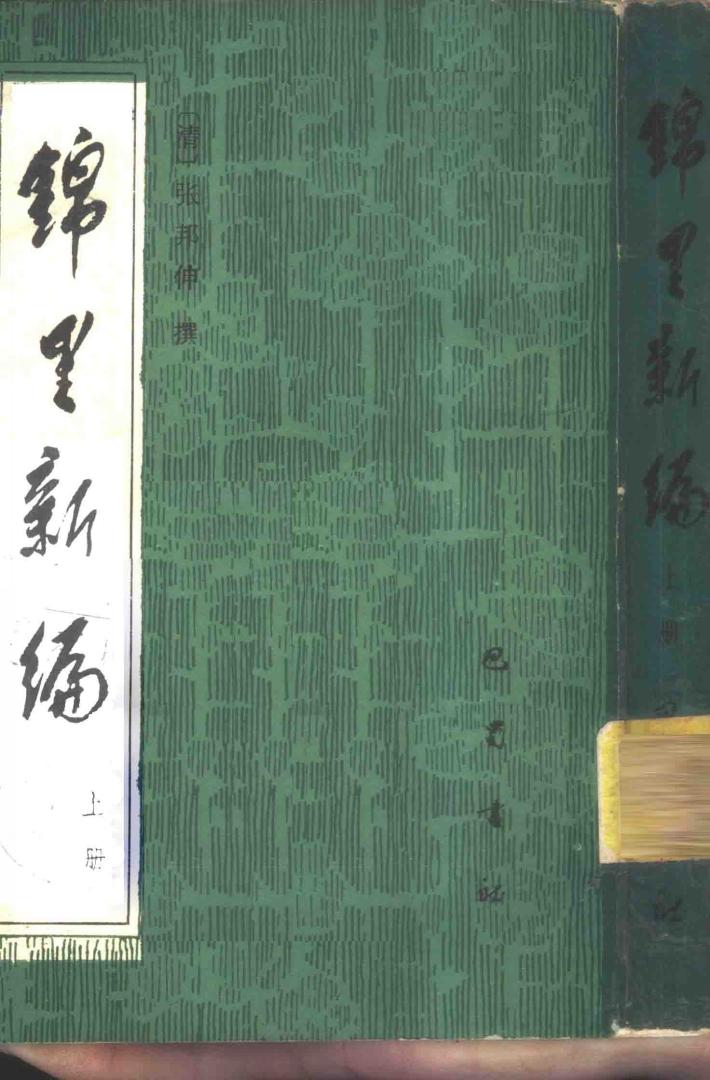 錦里新编
上册
〔清〕张邦伸撰
巴蜀書社
錦里新编
上册
社